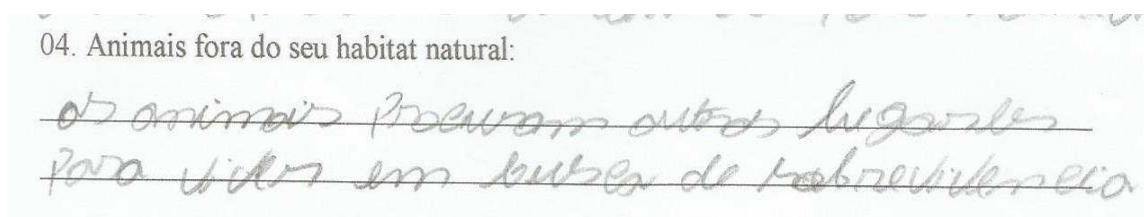 04. Animais fora do seu habitat natural:
os animais Procuram outros lugares
Para viver em busca de sobrevivencia